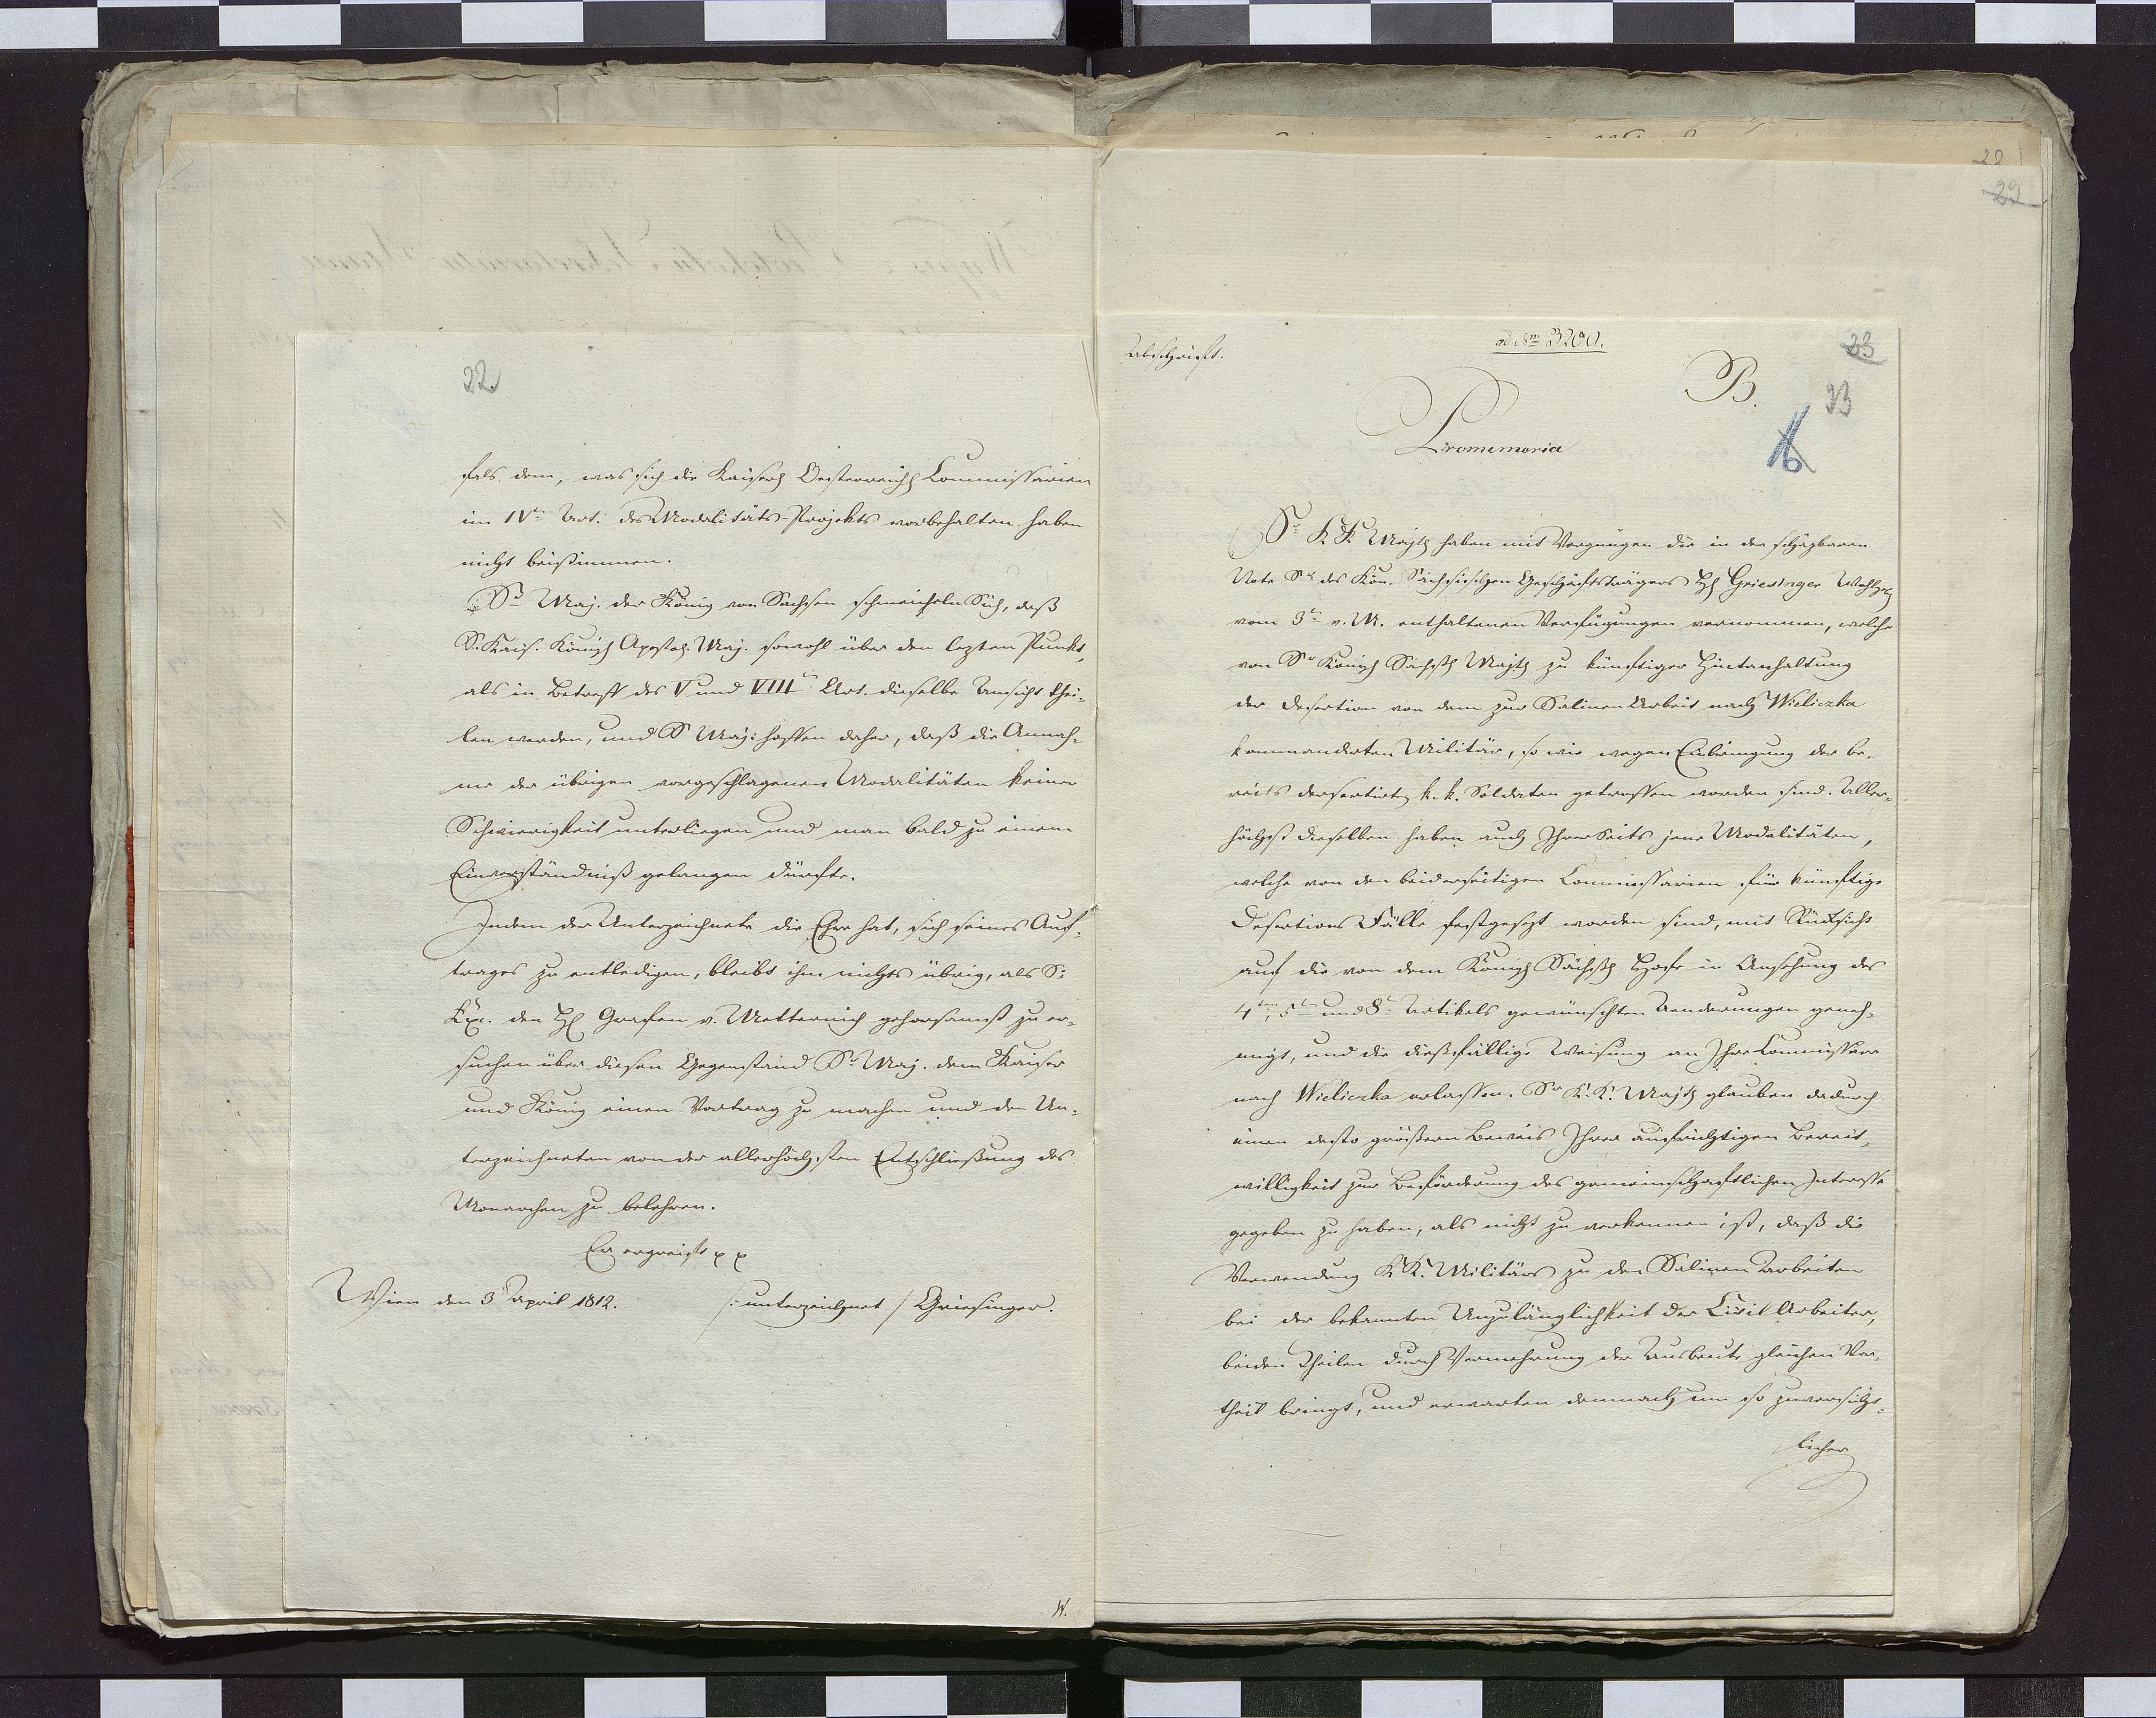 22.
fals dem, was sich die Kaiserl Oesterreichl Commissarien
im IVn Art. des Modalitäts-Projekts vorbehalten haben
nicht beistimmen.
Se Maj. der König von Sachsen schmeicheln Sich, daß
S. Kais. Königl Apostol. Maj. sowohl über den lezten Punkt,
als in Betreff des V und VIIIn Art. dieselbe Ansicht thei-
len werden, und Se Maj: hoffen daher, daß die Annah-
me der übrigen vorgeschlagenen Modalitäten keiner
Schwierigkeit unterliegen und man bald zu einem
Einverständniß gelangen dürfte.
Indem der Unterzeichnete die Ehre hat, sich seines Auf-
trages zu entledigen, bleibt ihm nichts übrig, als S:
Ex. den H Grafen v. Metternich gehorsamst zu er-
suchen über diesen Gegenstand Sr Maj. dem Kaiser
und König einen Vortrag zu machen und den Un-
terzeichneten von der allerhöchsten Entschließung des
Monarchen zu belehren.
Er ergreift
Wien den 3 April 1812. /: unterzeichnet / Griesinger.
22
29
Abschrift.
ad Nrm 3200.
23
B.
23
16
Promemoria
Se K.K. Majtt haben mit Vergnügen die in der schäzbaren
Note Sr des Kön. Sächsischen Geschäftsträgers H Griesinger Wohlg
vom 3tn v. M. enthaltenen Verfügungen vernommen, welche
von Sr Königl Sächß Majtt zu künftiger Hintanhaltung
der Desertion von dem zur Salinen Arbeit nach Wieliczka
kommandirten Militär, so wie wegen Einbringung der be-
reits desertirtn k. k. Soldaten getroffen worden sind. Aller-
höchst dieselben haben auch Ihrerseits jene Modalitäten,
welche von den beiderseitigen Commissarien für künftige
Desertions Fälle festgesezt worden sind, mit Rücksicht
auf die von dem Königl Sächß Hofe in Ansehung des
4ten, 5tn und 8n Artikels gewünschten Aenderungen geneh-
migt, und die dießfällige Weisung an Ihre Commissäre
nach Wieliczka erlassen. Se K.K. Majtt glauben dadurch
einen desto größern Beweis Ihrer aufrichtigen Bereit-
willigkeit zur Beförderung des gemeinschaftlichen Interesse
gegeben zu haben, als nicht zu verkennen ist, daß die
Verwendung K.K. Militärs zu den Salinen Arbeiten
bei der bekannten Unzulänglichkeit der Civil Arbeiter,
beiden Theilen durch Vermehrung der Ausbeute gleichen Vor-
theil bringt, und erwarten demnach um so zuversicht-
licher